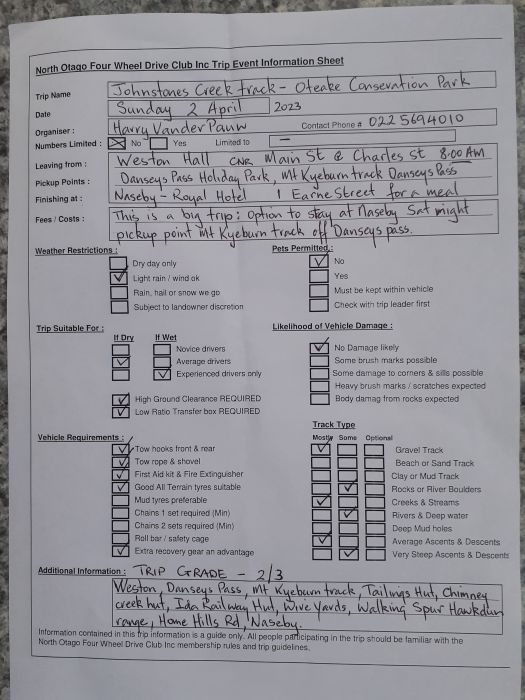 North Otago Four Wheel Drive Club Inc Trip Event Information Sheet
Trip Name Johnstones Creek track - Oteake Conservation Park
Date Sunday 2 April 2023
Organiser : Harry VanderPauw Contact Phone # 022 5694010
Numbers Limited : No Yes Limited to —
Leaving from : Weston Hall CNR Main St & Charles St 8:00 AM
Pickup Points : Danseys Pass Holiday Park, Mt Kyeburn track Danseys Pass
Finishing at : Naseby - Royal Hotel 1 Earne Street for a meal
Fees / Costs : This is a big trip: Option to stay at Naseby Sat night
pickup point Mt Kyeburn track off Danseys pass.
Weather Restrictions : Pets Permitted :
Dry day only No
Light rain / wind ok Yes
Rain, hail or snow we go Must be kept within vehicle
Subject to landowner discretion Check with trip leader first
Trip Suitable For : Likelihood of Vehicle Damage :
If Dry If Wet
Novice drivers No Damage likely
Average drivers Some brush marks possible
Experienced drivers only Some damage to corners & sills possible
Heavy brush marks / scratches expected
High Ground Clearance REQUIRED Body damag from rocks expected
Low Ratio Transfer box REQUIRED
Track Type
Vehicle Requirements : Mostly Some Optional
Tow hooks front & rear Gravel Track
Tow rope & shovel Beach or Sand Track
First Aid kit & Fire Extinguisher Clay or Mud Track
Good All Terrain tyres suitable Rocks or River Boulders
Mud tyres preferable Creeks & Streams
Chains 1 set required (Min) Rivers & Deep water
Chains 2 sets required (Min) Deep Mud holes
Roll bar / safety cage Average Ascents & Descents
Extra recovery gear an advantage Very Steep Ascents & Descents
Additional Information : TRIP GRADE - 2/3
Weston, Danseys Pass, Mt Kyeburn track, Tailings Hut, Chimney
creek hut, Ida Railway Hut, Wire Yards, Walking Spur Hawkdun
range, Home Hills Rd, Naseby.
Information contained in this trip information is a guide only. All people participating in the trip should be familiar with the
North Otago Four Wheel Drive Club Inc membership rules and trip guidelines.